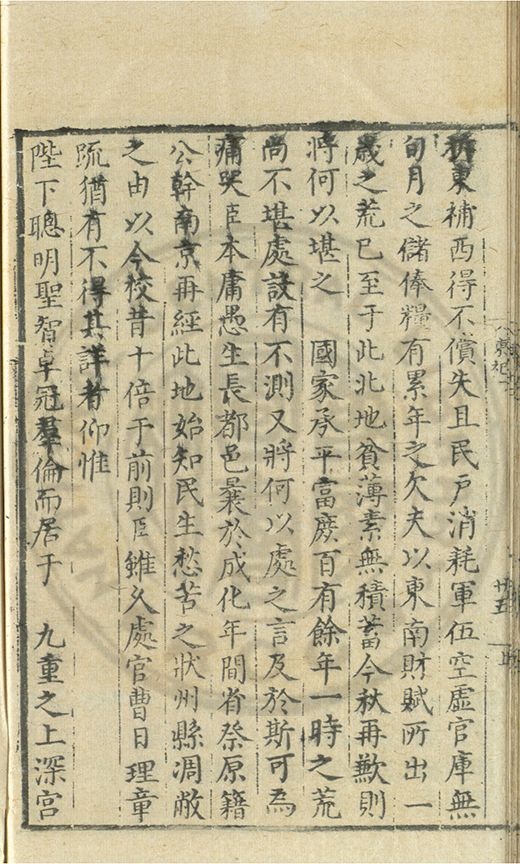 拆東補西得不償失且民戶消耗軍伍空虛官庫無
旬月之儲俸糧有累年之欠夫以東南財賦所出一
歲之荒已至于此北地貧薄素無積蓄今秋再歉則
將何以堪之　國家承平富庶百有餘年一時之荒
尚不堪處設有不測又將何以處之言及於斯可為
痛哭臣本庸愚生長都邑曩於成化年間省祭原籍
公幹南京再經此地始知民生愁苦之狀州縣凋敝
之由以今校昔十倍于前則臣雖久處官曹日理章
疏猶有不得其詳者仰惟
陛下聰明聖智卓冠羣倫而居于　九重之上深宮
廿五